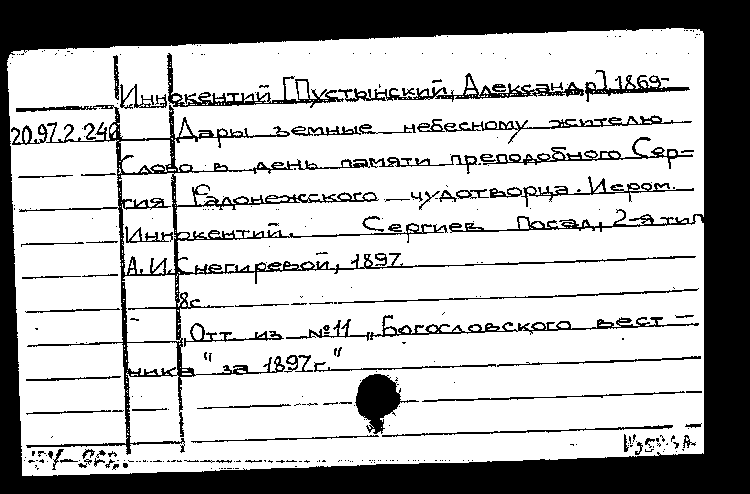 Иннокентий [Пустынский, Александр], 1869-
20.97.2.246 Дары земные небесному жителю.
Слово в день памяти преподобного Сер=
гия Радонежского чудотворца. Иером.
Иннокентий. Сергиев Посад, 2-я тип
А. И. Снегиревой, 1897.
8с.
„Отт из №11 „Богословского вест-
ника" за 1897г."